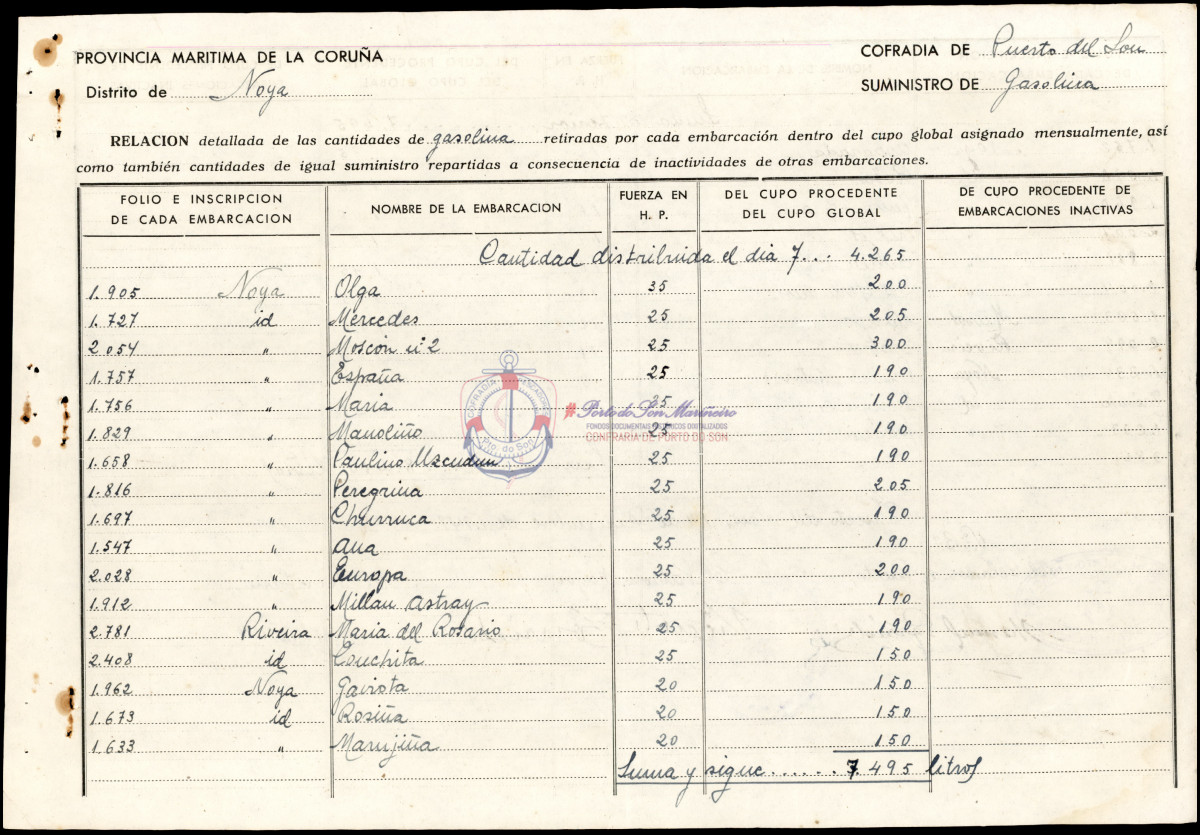 PROVINCIA MARITIMA DE LA CORUÑA
COFRADIA DE Puerto del Son
Distrito de Noya
SUMINISTRO DE Gasolina
RELACION detallada de las cantidades de gasolina retiradas por cada embarcación dentro del cupo global asignado mensualmente, así
como también cantidades de igual suministro repartidas a consecuencia de inactividades de otras embarcaciones.
FOLIO E INSCRIPCION DE CADA EMBARCACION
NOMBRE DE LA EMBARCACION
FUERZA EN H. P.
DEL CUPO PROCEDENTE DEL CUPO GLOBAL
DE CUPO PROCEDENTE DE EMBARCACIONES INACTIVAS
Cantidad distribuida el dia 7... 4.265
1.905 Noya Olga 35 200
1.727 id Mercedes 25 205
2.054 " Moscón nº 2 25 300
1.757 " España 25 190
1.756 " Maria 25 190
1.829 " Manoliño 25 190
1.658 " Paulino Uzcudun 25 190
1.816 " Peregrina 25 205
1.697 " Churruca 25 190
1.547 " Ana 25 190
2.028 " Europa 25 200
1.912 " Millan Astray 25 190
2.781 Riveira Maria del Rosario 25 190
2.408 id Conchita 25 150
1.962 Noya Gaviota 20 150
1.673 id Rosiña 20 150
1.633 " Marujiña 20 150
Suma y sigue...... 7.495 litros
COFRADÍA PESCADORES
Pto. do Son
#PortodoSonMariñeiro
FONDOS DOCUMENTAIS HISTÓRICOS DIGITALIZADOS
CONFRARÍA DE PORTO DO SON